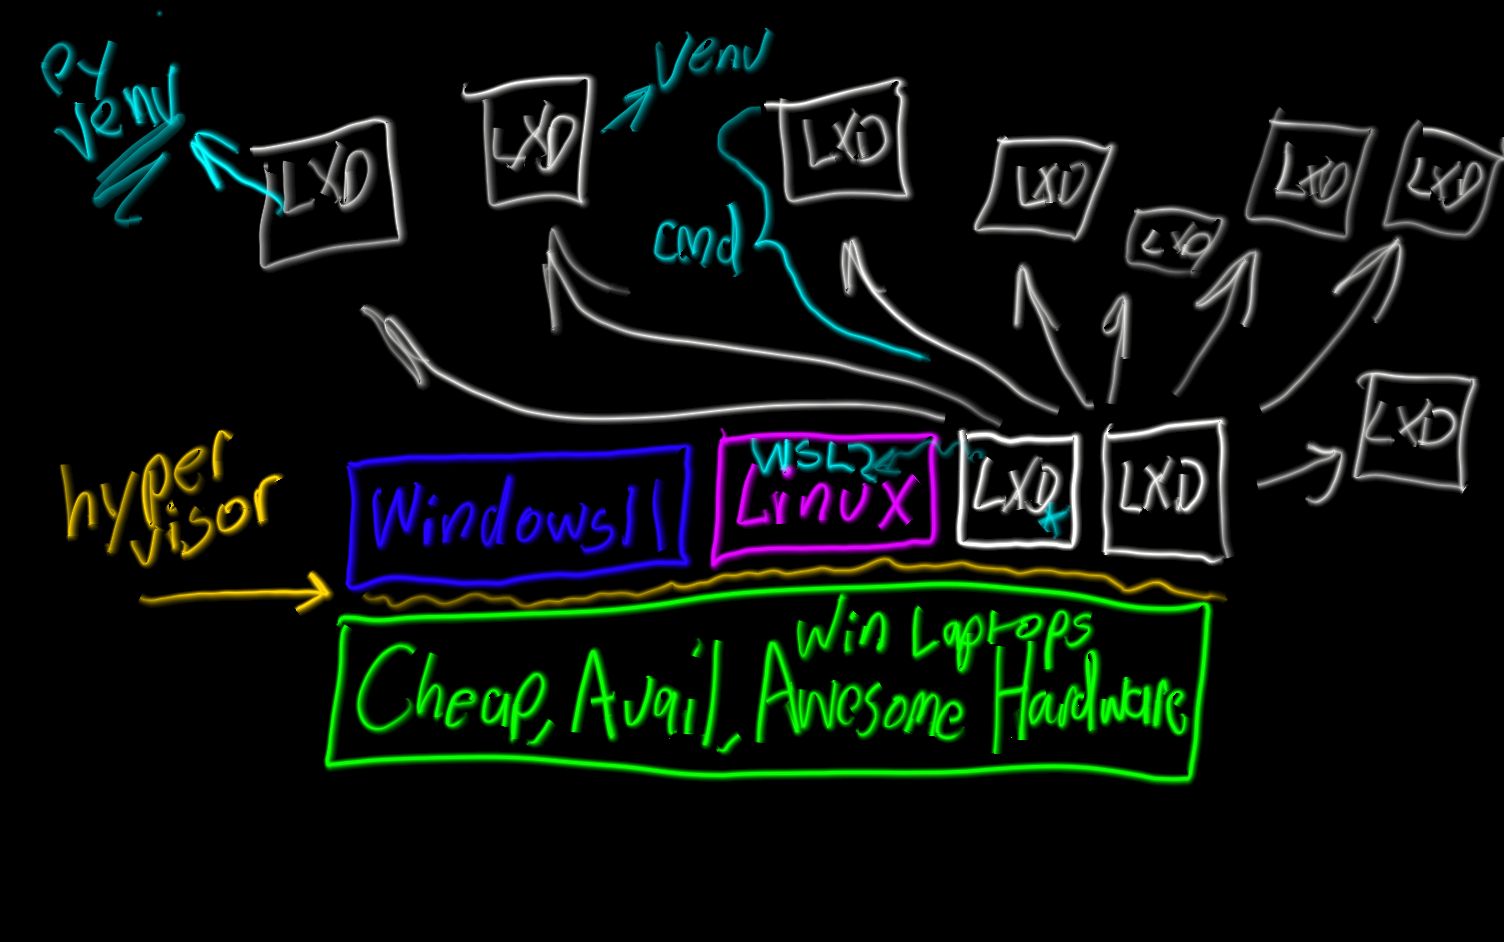 py
venv
LXD
LXD
venv
LXD
cmd
LXD
LXD
LXD
LXD
LXD
hyper
visor
Windows11
WSL2
Linux
LXD
LXD
Win Laptops
Cheap, Avail, Awesome Hardware